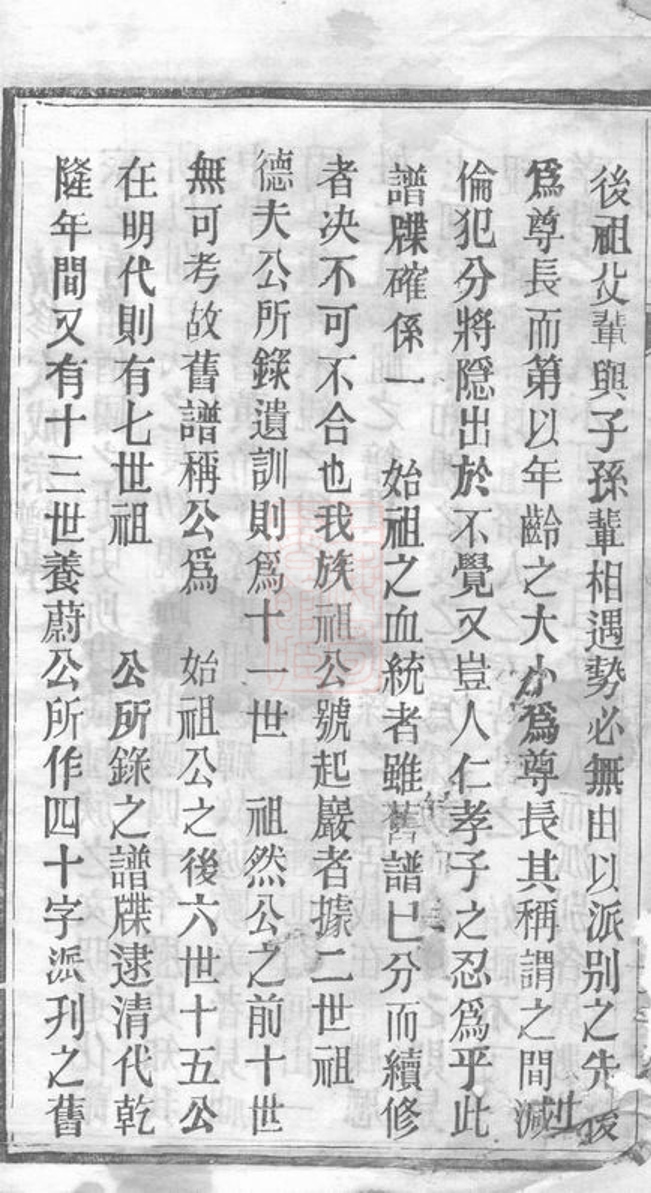 後祖父輩與子孫輩相遇勢必無由以派別之先後
爲尊長而第以年齡之大小爲尊長其稱謂之間滅
倫犯分將隱出於不覺又豈人仁孝子之忍爲乎此
譜牒確係一　始祖之血統者雖舊譜已分而續修
者决不可不合也我族祖公號起巖者據二世祖
德夫公所錄遺訓則爲十一世　祖然公之前十世
無可考故舊譜稱公爲　始祖公之後六世十五公
在明代則有七世祖　　公所錄之譜牒逮清代乾
隆年間又有十三世養蔚公所作四十字派刋之舊